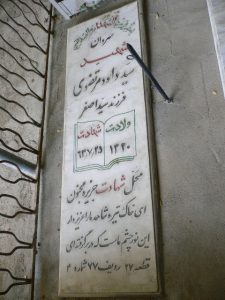 سروان
شهید
سید داود مرتضوی
فرزند سید اصغر
ولادت شهادت
۱۳۴۰ ۶۳/۷/۲۵
محل شهادت جزیره مجنون
ای خاک تیره شاهد ما را عزیز دار
این نور چشم ماست که در بر گرفته‌ای
قطعه ۲۷ ردیف ۷۷ شماره ۴